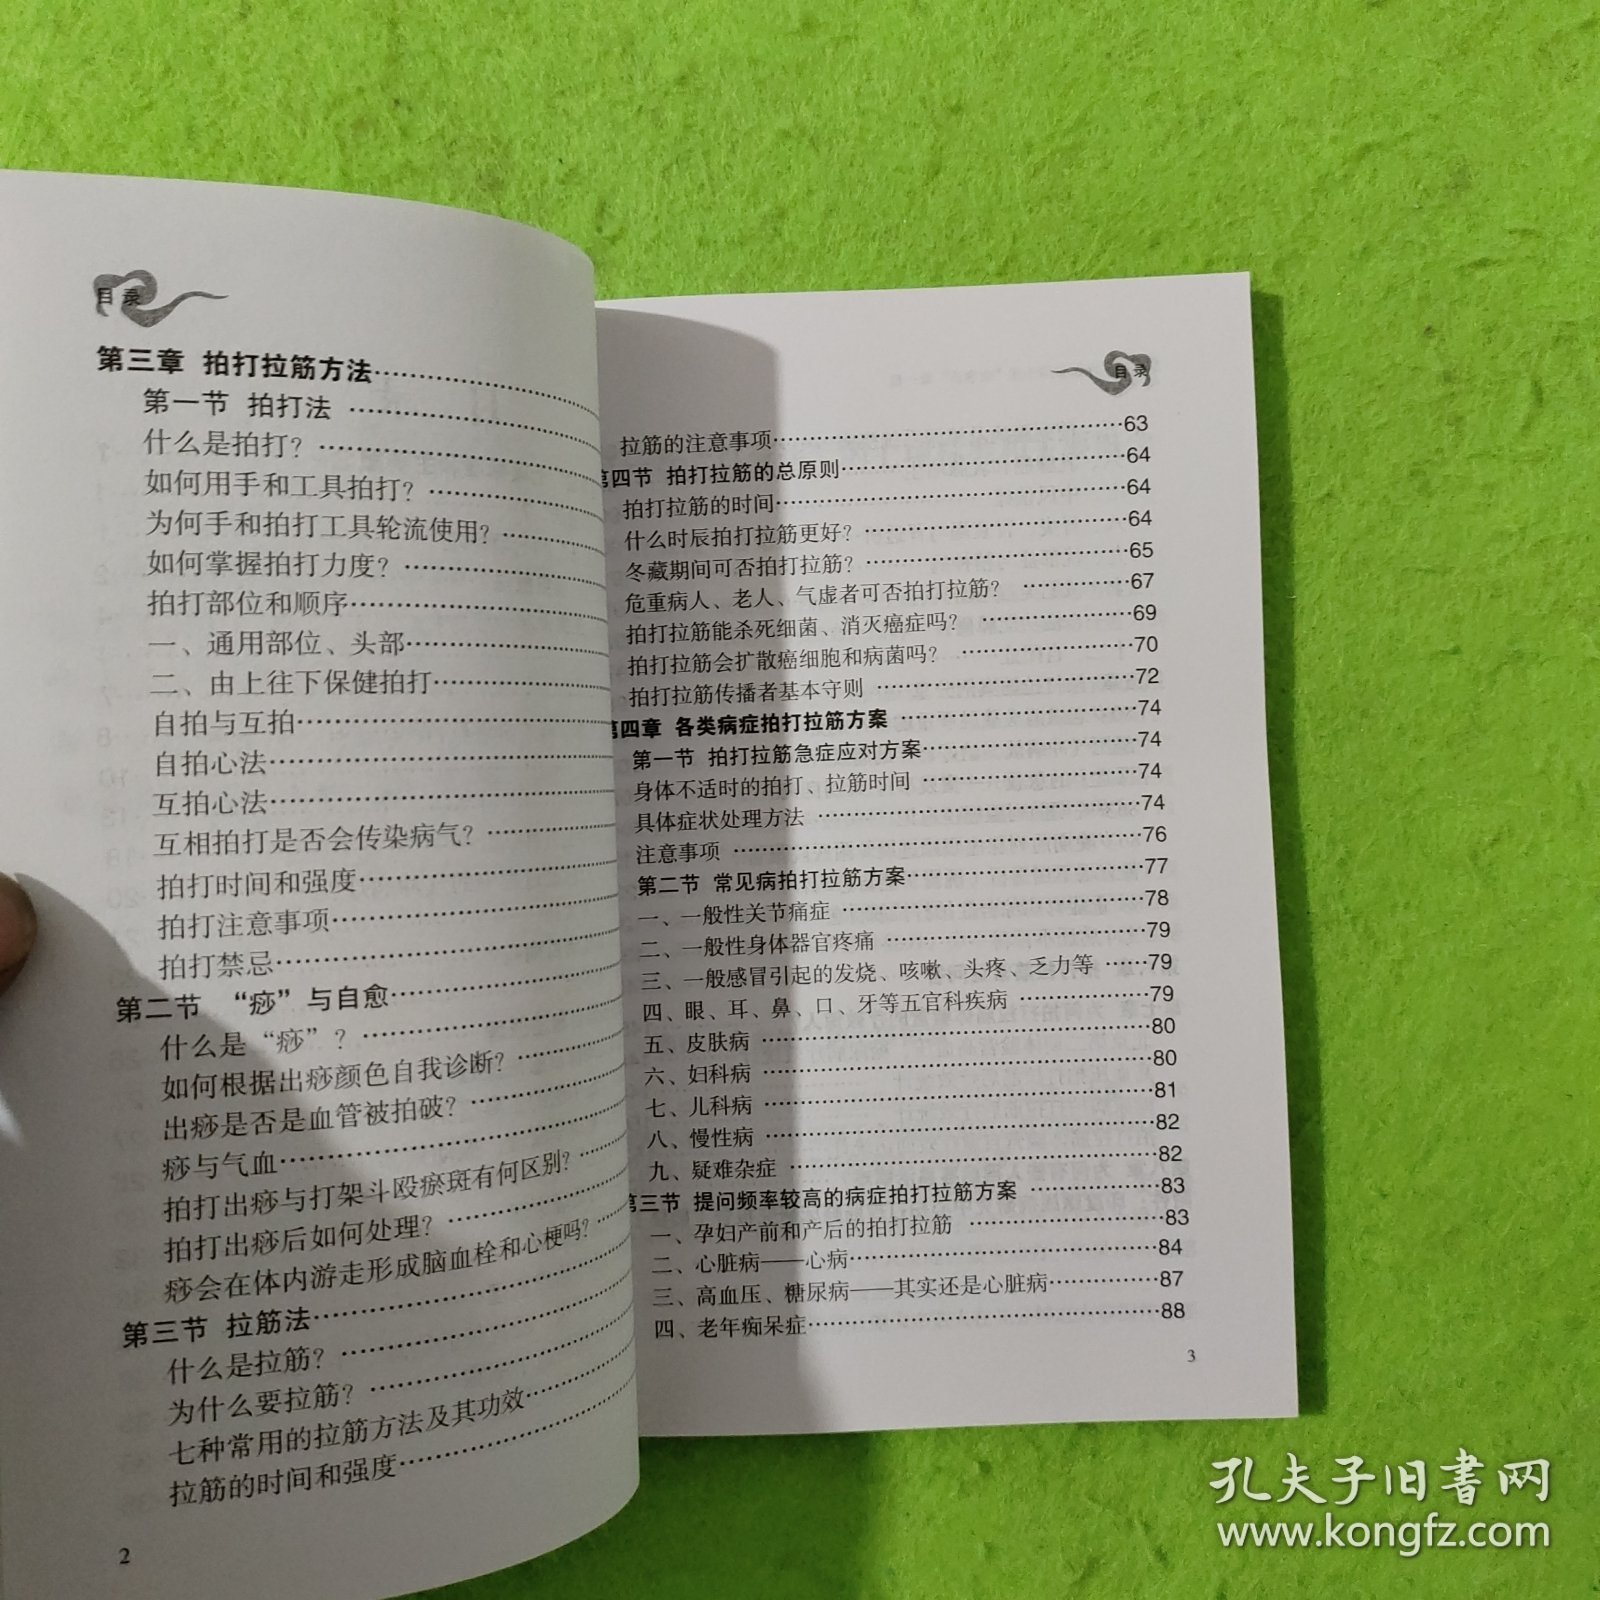 目录
第三章 拍打拉筋方法
第一节 拍打法
什么是拍打？
如何用手和工具拍打？
为何手和拍打工具轮流使用？
如何掌握拍打力度？
拍打部位和顺序
一、通用部位、头部
二、由上往下保健拍打
自拍与互拍
自拍心法
互拍心法
互相拍打是否会传染病气？
拍打时间和强度
拍打注意事项
拍打禁忌
第二节 “痧”与自愈
什么是“痧”？
如何根据出痧颜色自我诊断？
出痧是否是血管被拍破？
痧与气血
拍打出痧与打架斗殴瘀斑有何区别？
拍打出痧后如何处理？
痧会在体内游走形成脑血栓和心梗吗？
第三节 拉筋法
什么是拉筋？
为什么要拉筋？
七种常用的拉筋方法及其功效
拉筋的时间和强度
2
目录
拉筋的注意事项 63
第四节 拍打拉筋的总原则 64
拍打拉筋的时间 64
什么时辰拍打拉筋更好？ 64
冬藏期间可否拍打拉筋？ 65
危重病人、老人、气虚者可否拍打拉筋？ 67
拍打拉筋能杀死细菌、消灭癌症吗？ 69
拍打拉筋会扩散癌细胞和病菌吗？ 70
拍打拉筋传播者基本守则 72
第四章 各类病症拍打拉筋方案 74
第一节 拍打拉筋急症应对方案 74
身体不适时的拍打、拉筋时间 74
具体症状处理方法 74
注意事项 76
第二节 常见病拍打拉筋方案 77
一、一般性关节痛症 78
二、一般性身体器官疼痛 79
三、一般感冒引起的发烧、咳嗽、头疼、乏力等 79
四、眼、耳、鼻、口、牙等五官科疾病 79
五、皮肤病 80
六、妇科病 80
七、儿科病 81
八、慢性病 82
九、疑难杂症 82
第三节 提问频率较高的病症拍打拉筋方案 83
一、孕妇产前和产后的拍打拉筋 83
二、心脏病——心病 84
三、高血压、糖尿病——其实还是心脏病 87
四、老年痴呆症 88
3
孔夫子旧书网
www.kongfz.com